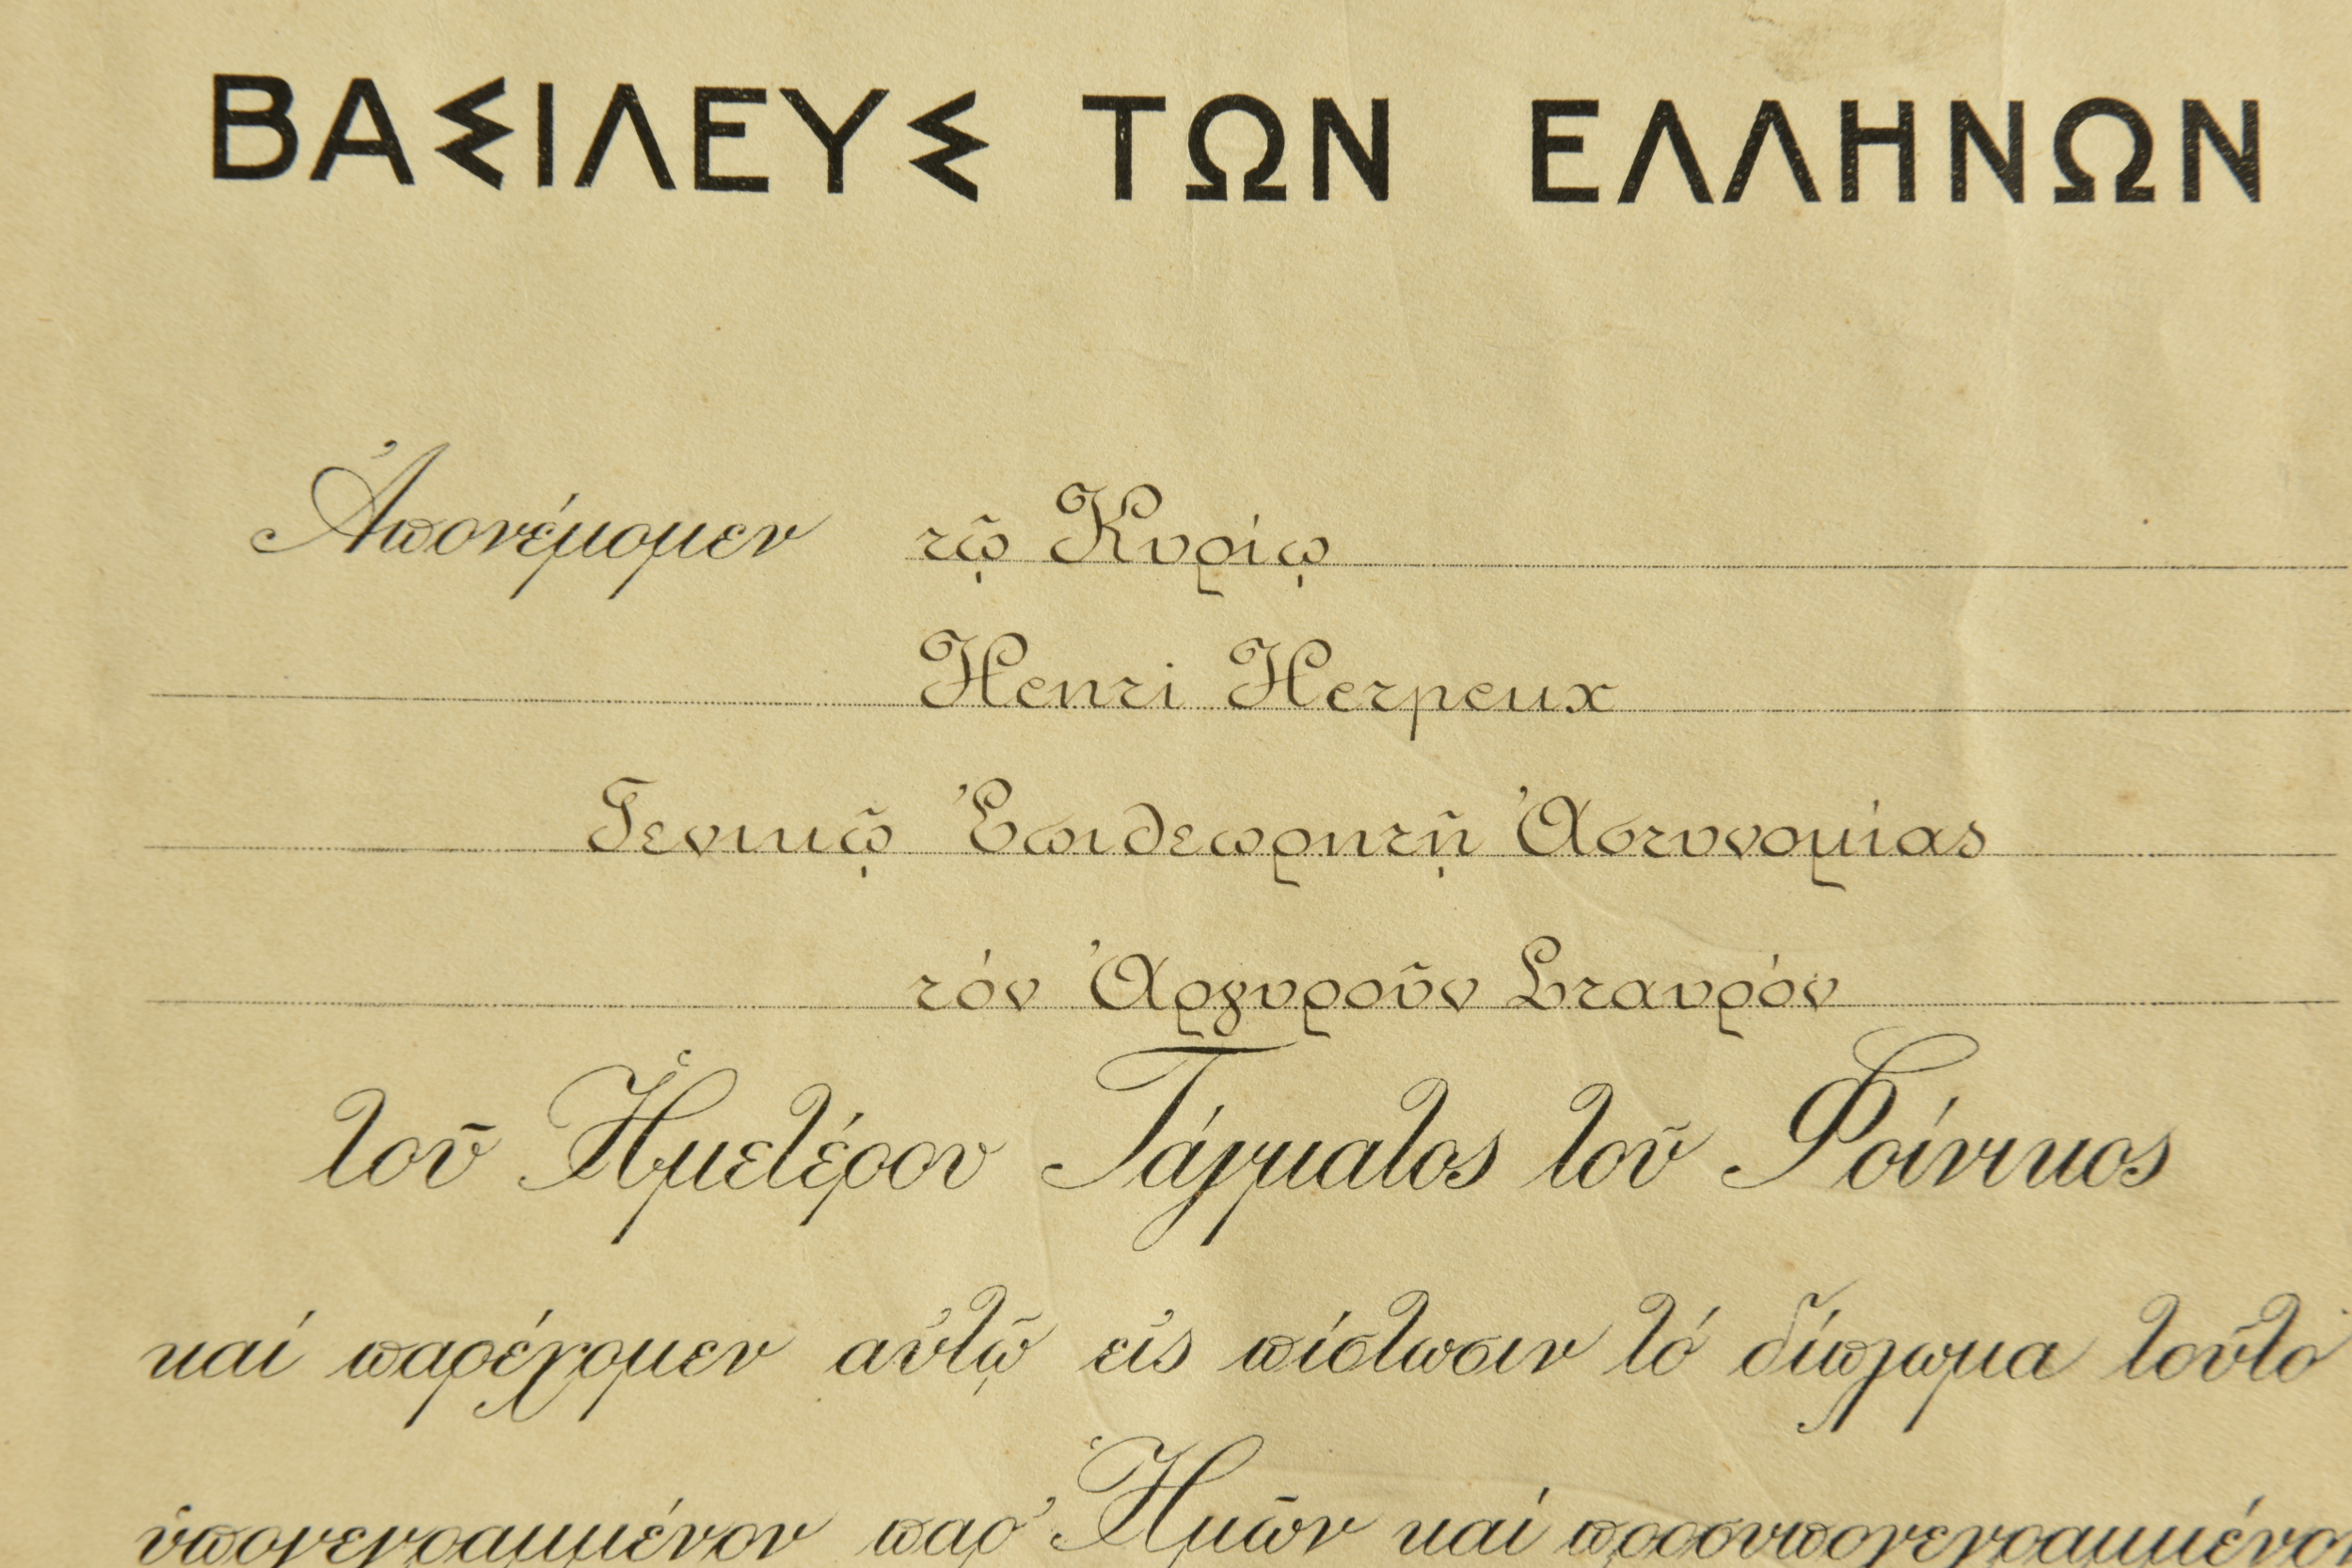 ΒΑΣΙΛΕΥΣ ΤΩΝ ΕΛΛΗΝΩΝ
Ἀπονέμομεν τῷ Κυρίῳ
Henri Herpeux
Γενικῷ Ἐπιθεωρητῇ Ἀστυνομίας
τόν Ἀργυροῦν Σταυρόν
τοῦ Ἡμετέρου Τάγματος τοῦ Φοίνικος
καί παρέχομεν αὐτῷ εἰς πίστωσιν τό δίπλωμα τοῦτο
ὑπογεγραμμένον παρ' Ἡμῶν καί